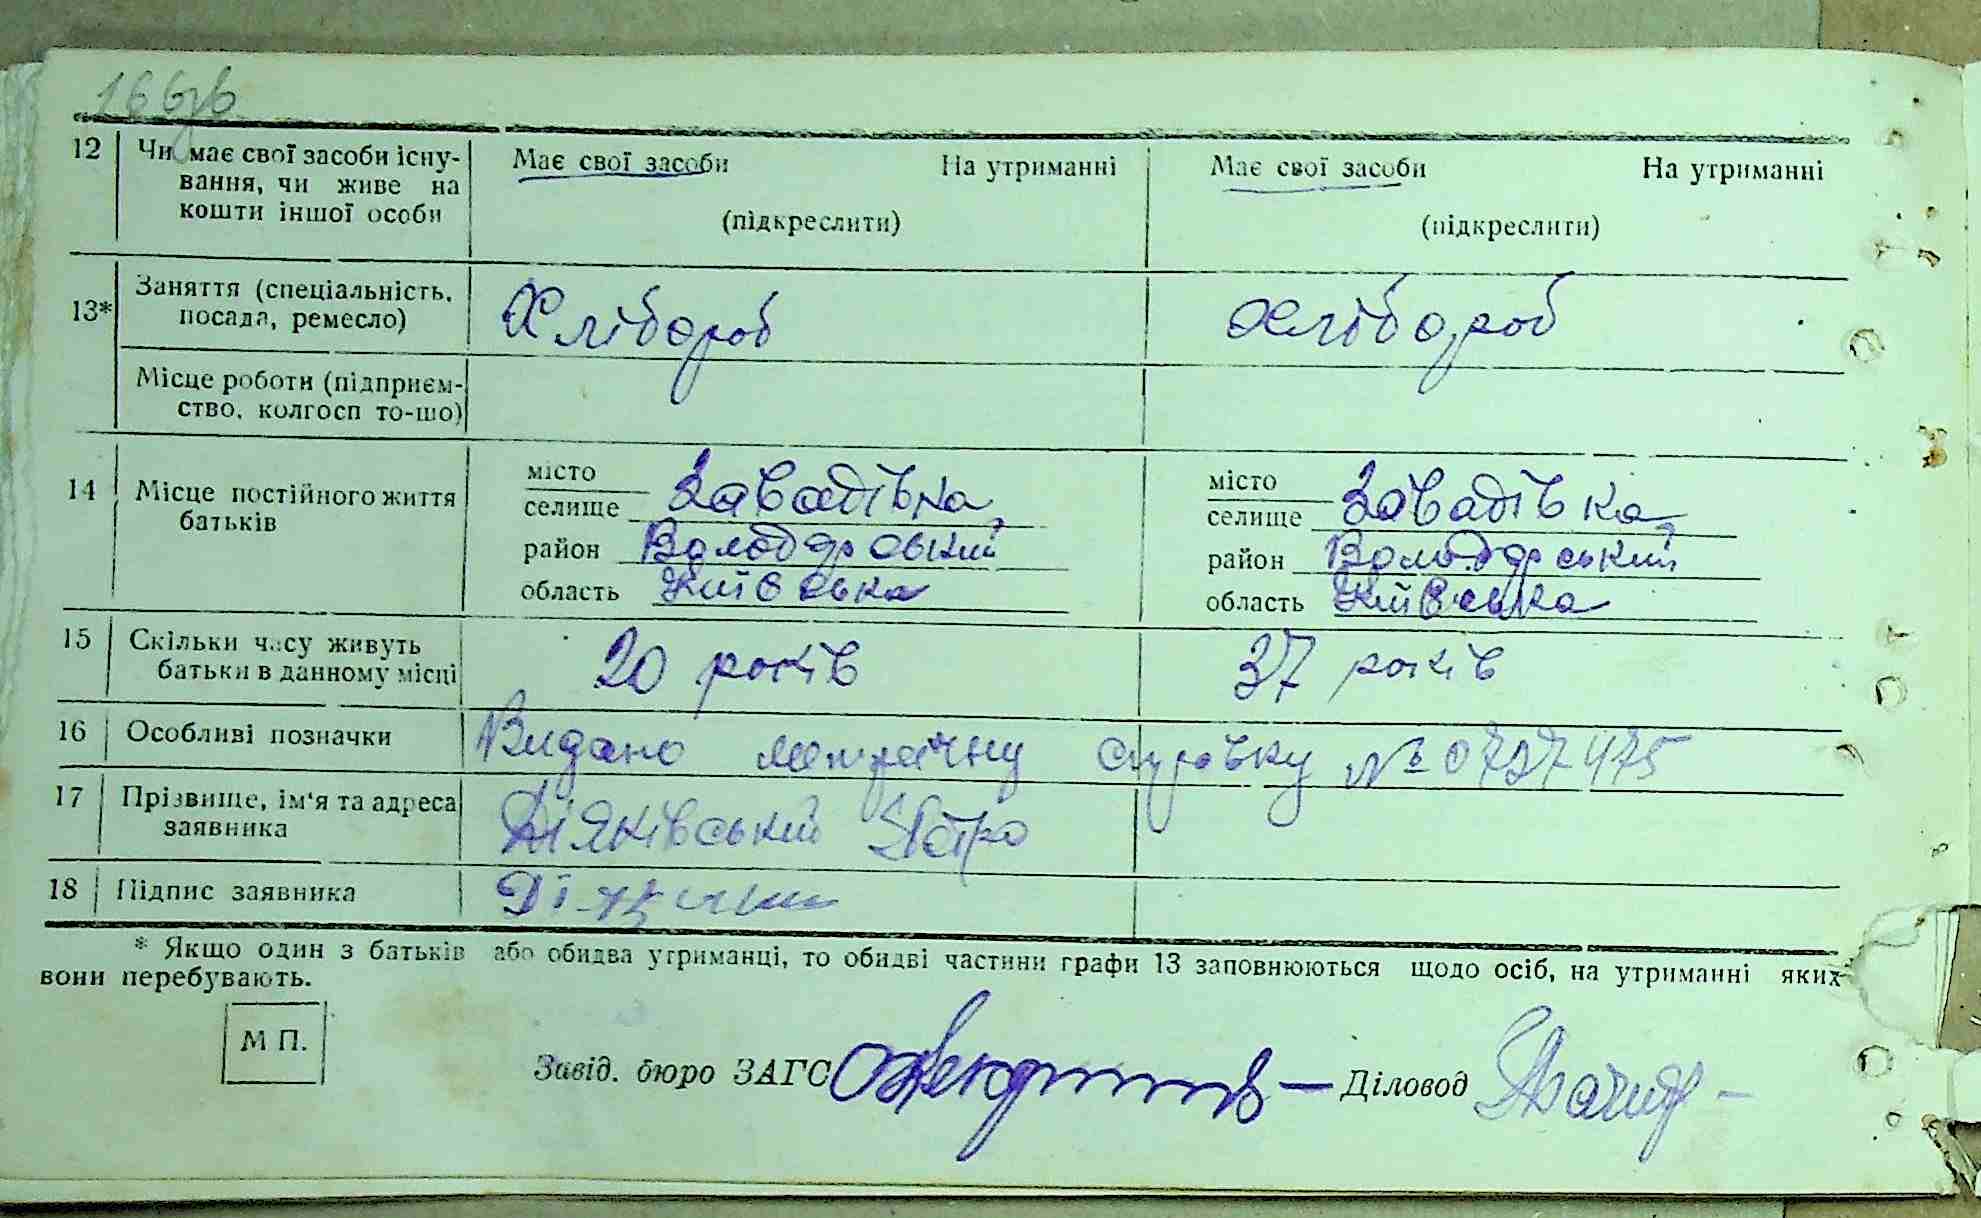 166зв
12 Чи має свої засоби існу- Має свої засоби На утриманні Має свої засоби На утриманні
вання, чи живе на
кошти іншої особи (підкреслити) (підкреслити)
13* Заняття (спеціальність, Хлібороб Хлібороб
посада, ремесло)
Місце роботи (підприєм-
ство, колгосп то-що)
14 Місце постійного життя місто Завадівка, місто Завадівка,
батьків селище селище
район Володарський район Володарський
область Київська область Київська
15 Скільки часу живуть 20 років 37 років
батьки в данному місці
16 Особливі позначки Видано метричну справку № 0727475
17 Прізвище, ім'я та адреса Діяківський Петро
заявника
18 Підпис заявника
* Якщо один з батьків або обидва утриманці, то обидві частини графи 13 заповнюються щодо осіб, на утриманні яких
вони перебувають.
М П.
Завід. бюро ЗАГС Діловод